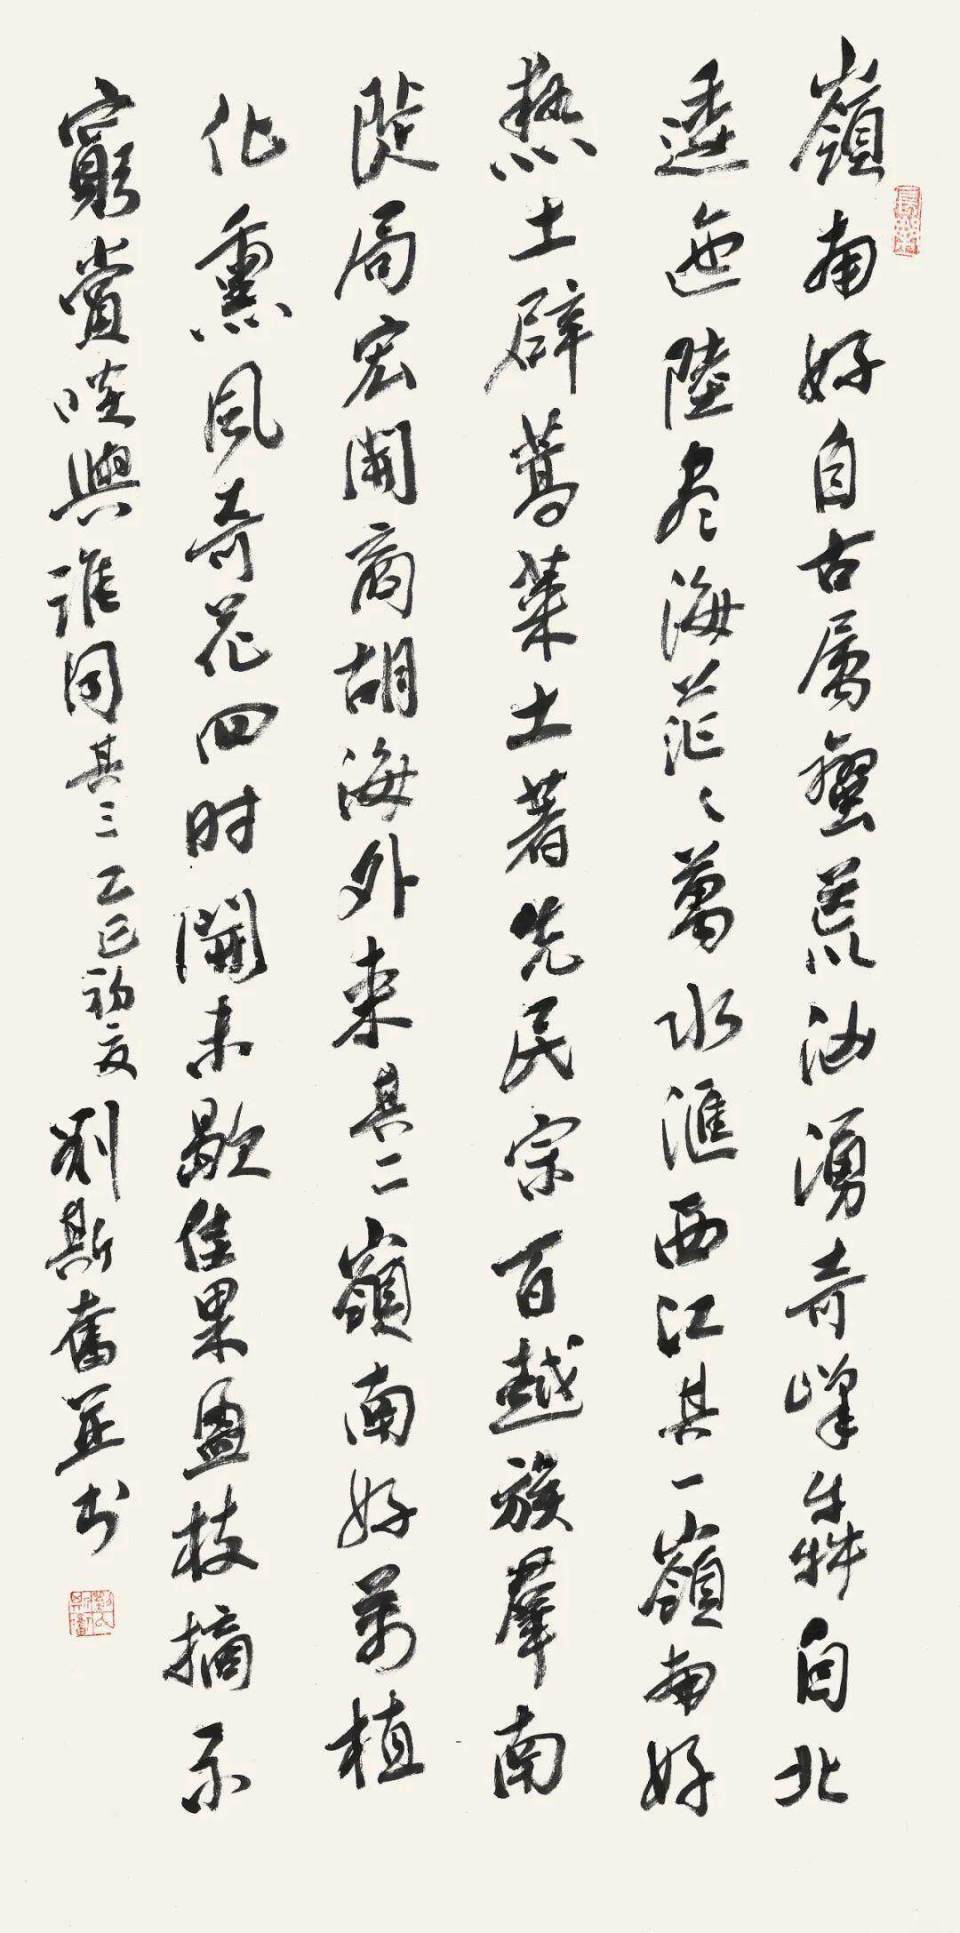 嶺南好自古属蠻荒汹湧奇峰犇自北
逶迤陸尽海茫々萬水滙西江其一嶺南好
熱土辟蒿萊土著先民宗百越族羣南
徙局宏開商胡海外来其二嶺南好萬植
化熏風奇花四时開未歇佳果盈枝摘不
窮賞啖與誰同其三乙巳初夏劉斯奮並书